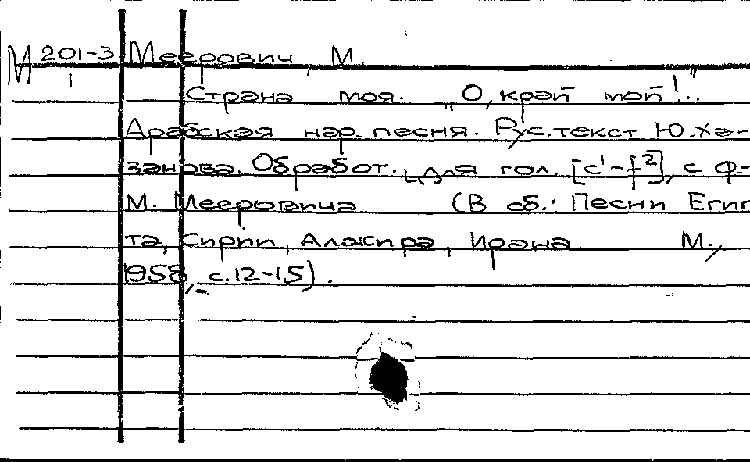 М 201-3 Меерович, М.
Страна моя. „О, край мой!"..
Арабская нар. песня. Рус. текст Ю. Ха-
занова. Обработ. для гол. [c¹-f²], с ф-
М. Мееровича (В сб.: Песни Егип
та, Сирии, Алжира, Ирана М.,
1958, с. 12-15).